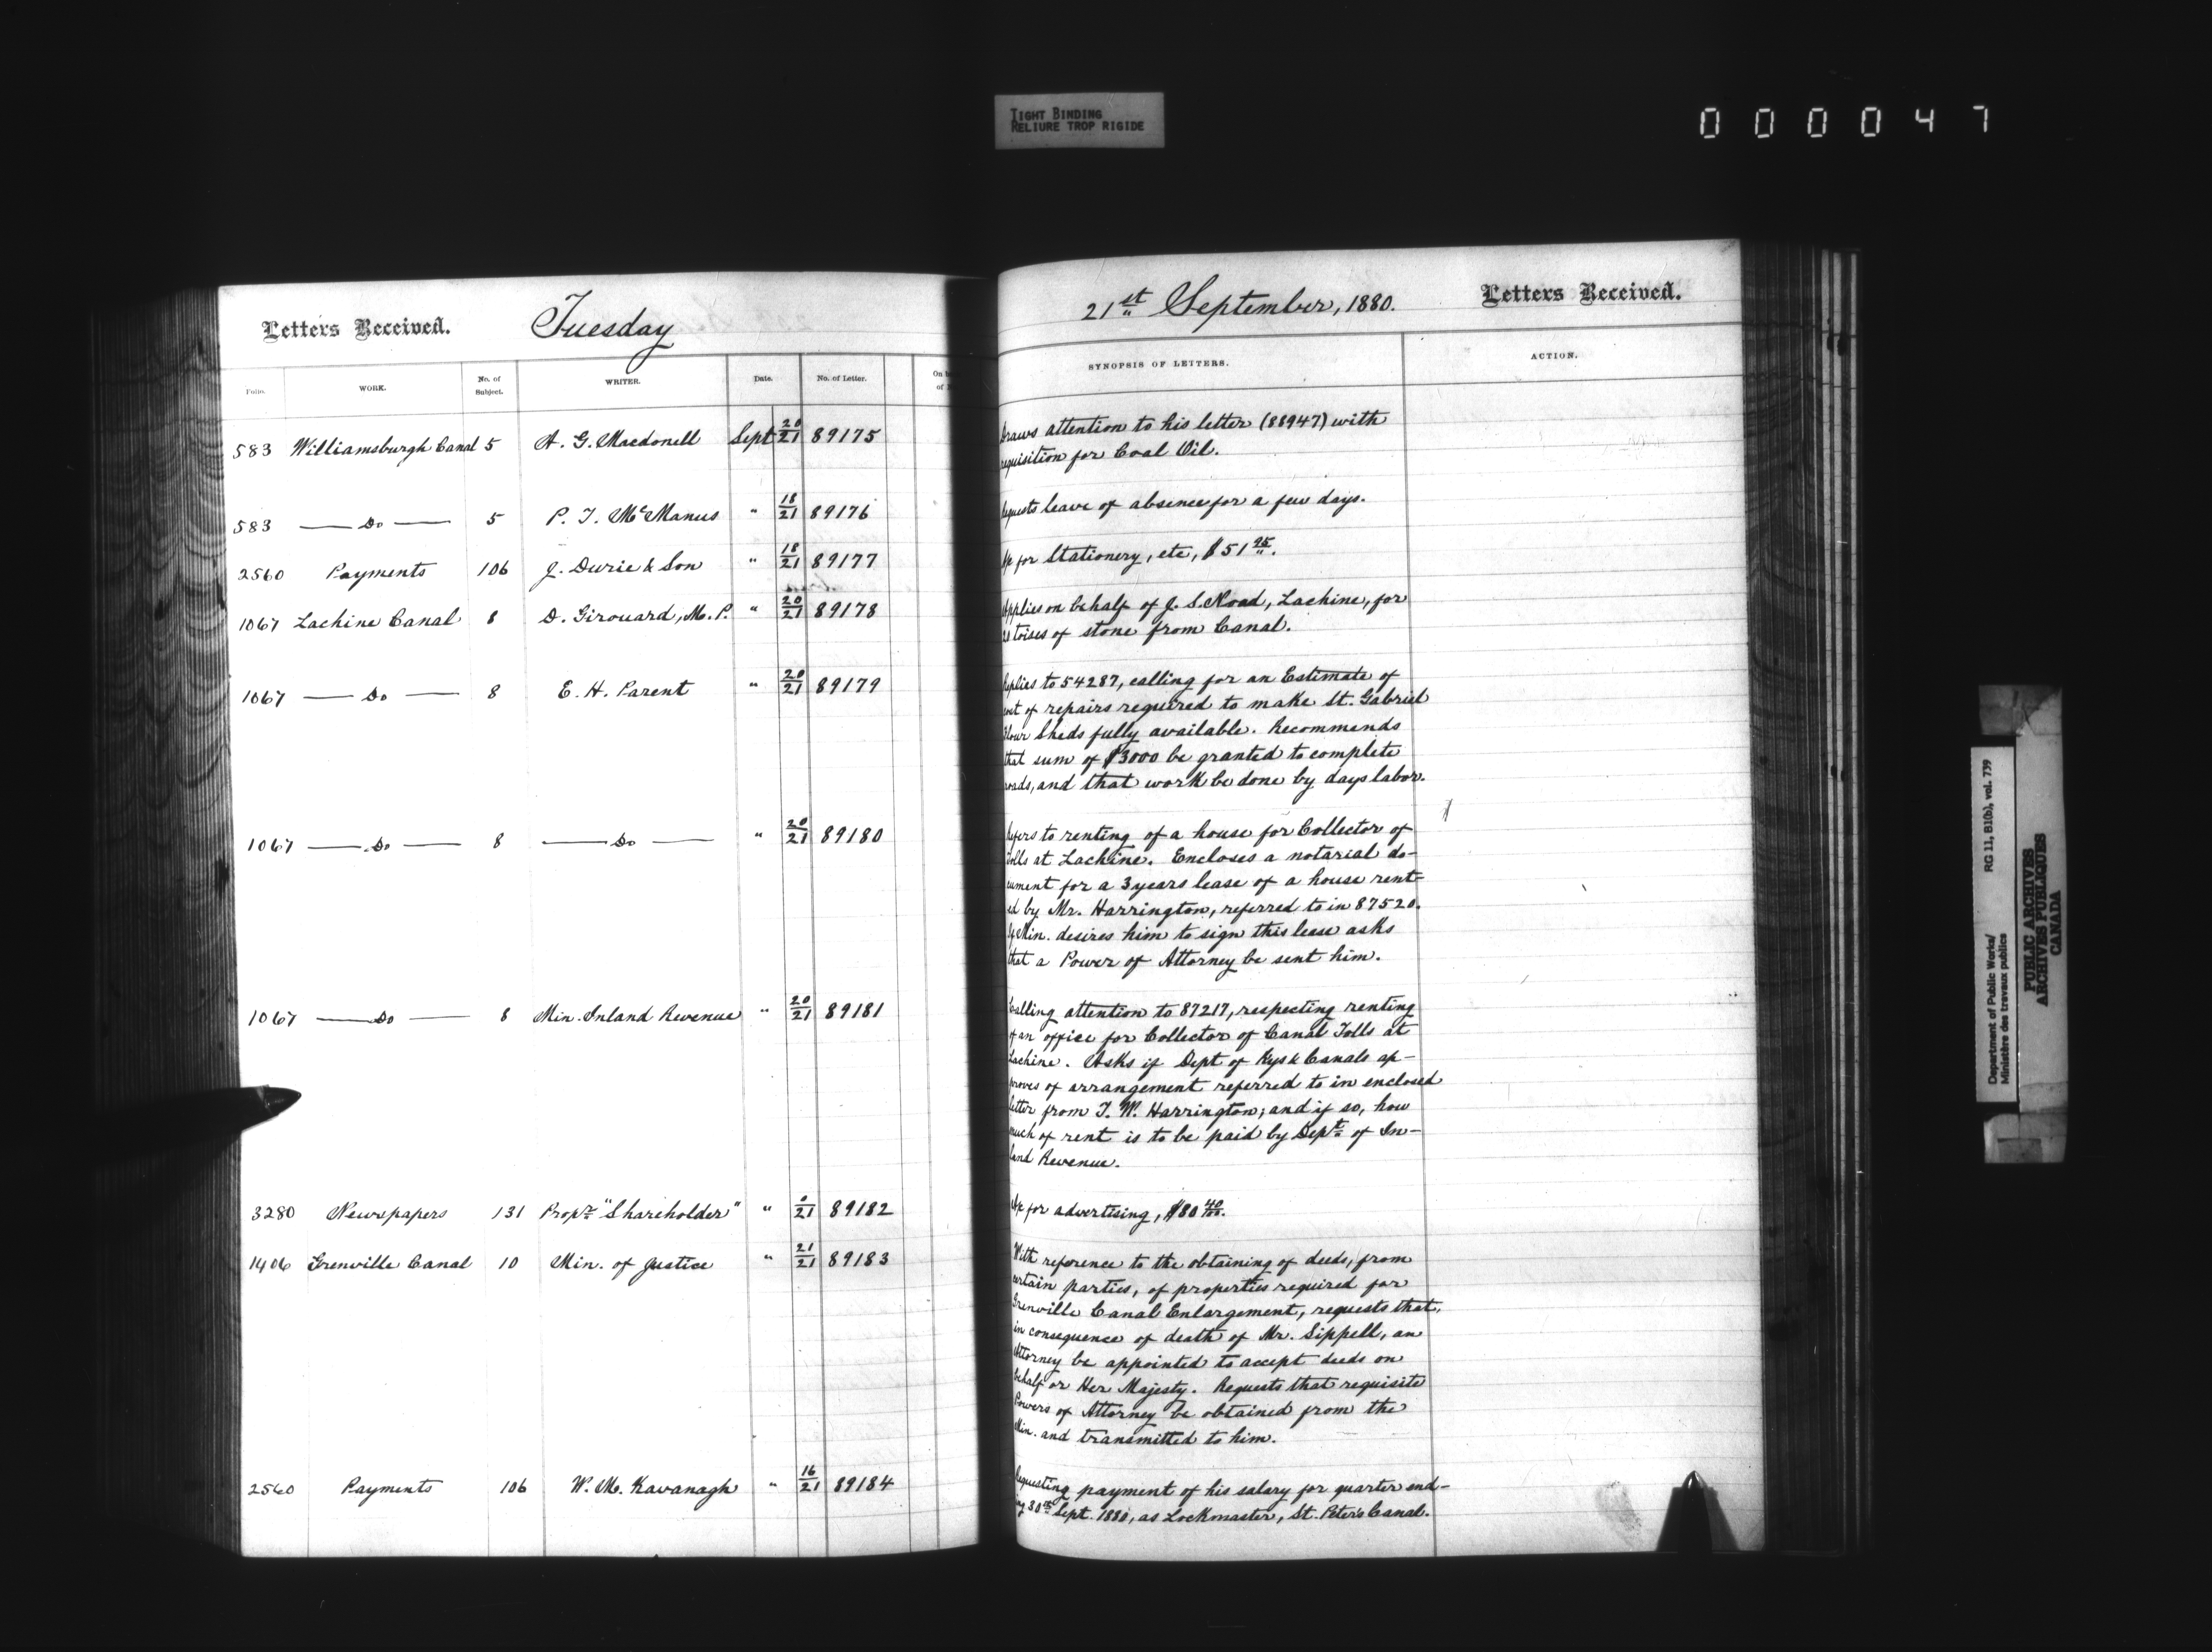 TIGHT BINDING
RELIURE TROP RIGIDE
000047
Letters Received. Tuesday
Folio. WORK. No. of Subject. WRITER. Date. No. of Letter. On b
of
583 Williamsburgh Canal 5 A. G. Macdonell Sept 20/21 89175
583 — Do — 5 P. J. McManus " 18/21 89176
2560 Payments 106 J. Durie & Son " 18/21 89177
1067 Lachine Canal 8 D. Girouard, M.P. " 20/21 89178
1067 — Do — 8 E. H. Parent " 20/21 89179
1067 — Do — 8 — Do — " 20/21 89180
1067 — Do — 8 Min. Inland Revenue " 20/21 89181
3280 Newspapers 131 Propr. "Shareholder" " 0/21 89182
1406 Grenville Canal 10 Min. of Justice " 21/21 89183
2560 Payments 106 W. M. Kavanagh " 16/21 89184
21st September, 1880. Letters Received.
SYNOPSIS OF LETTERS. ACTION.
Draws attention to his letter (88947) with
requisition for Coal Oil.
Requests leave of absence for a few days.
A/c for Stationery, etc, $51 25.
Applies on behalf of J. S. Noad, Lachine, for
toises of stone from Canal.
Replies to 54287, calling for an Estimate of
cost of repairs required to make St. Gabriel
Flour Sheds fully available. Recommends
that sum of $3000 be granted to complete
roads, and that work be done by days labor.
Refers to renting of a house for Collector of
Tolls at Lachine. Encloses a notarial do-
cument for a 3 years lease of a house rent-
ed by Mr. Harrington, referred to in 87520.
If Min. desires him to sign this lease asks
that a Power of Attorney be sent him.
Calling attention to 87217, respecting renting
of an office for Collector of Canal Tolls at
Lachine. Asks if Dept of Rys & Canals ap-
proves of arrangement referred to in enclosed
letter from T. W. Harrington; and if so, how
much of rent is to be paid by Dept. of In-
land Revenue.
A/c for advertising, $80 40/100.
With reference to the obtaining of deeds, from
certain parties, of properties required for
Grenville Canal Enlargement, requests that,
in consequence of death of Mr. Sippell, an
Attorney be appointed to accept deeds on
behalf or Her Majesty. Requests that requisite
Powers of Attorney be obtained from the
Min. and transmitted to him.
Requesting payment of his salary for quarter end-
ing 30th Sept. 1880, as Lockmaster, St. Peter's Canal.
Department of Public Works/ RG 11, B1(b), vol. 739
Ministère des travaux publics
PUBLIC ARCHIVES
ARCHIVES PUBLIQUES
CANADA